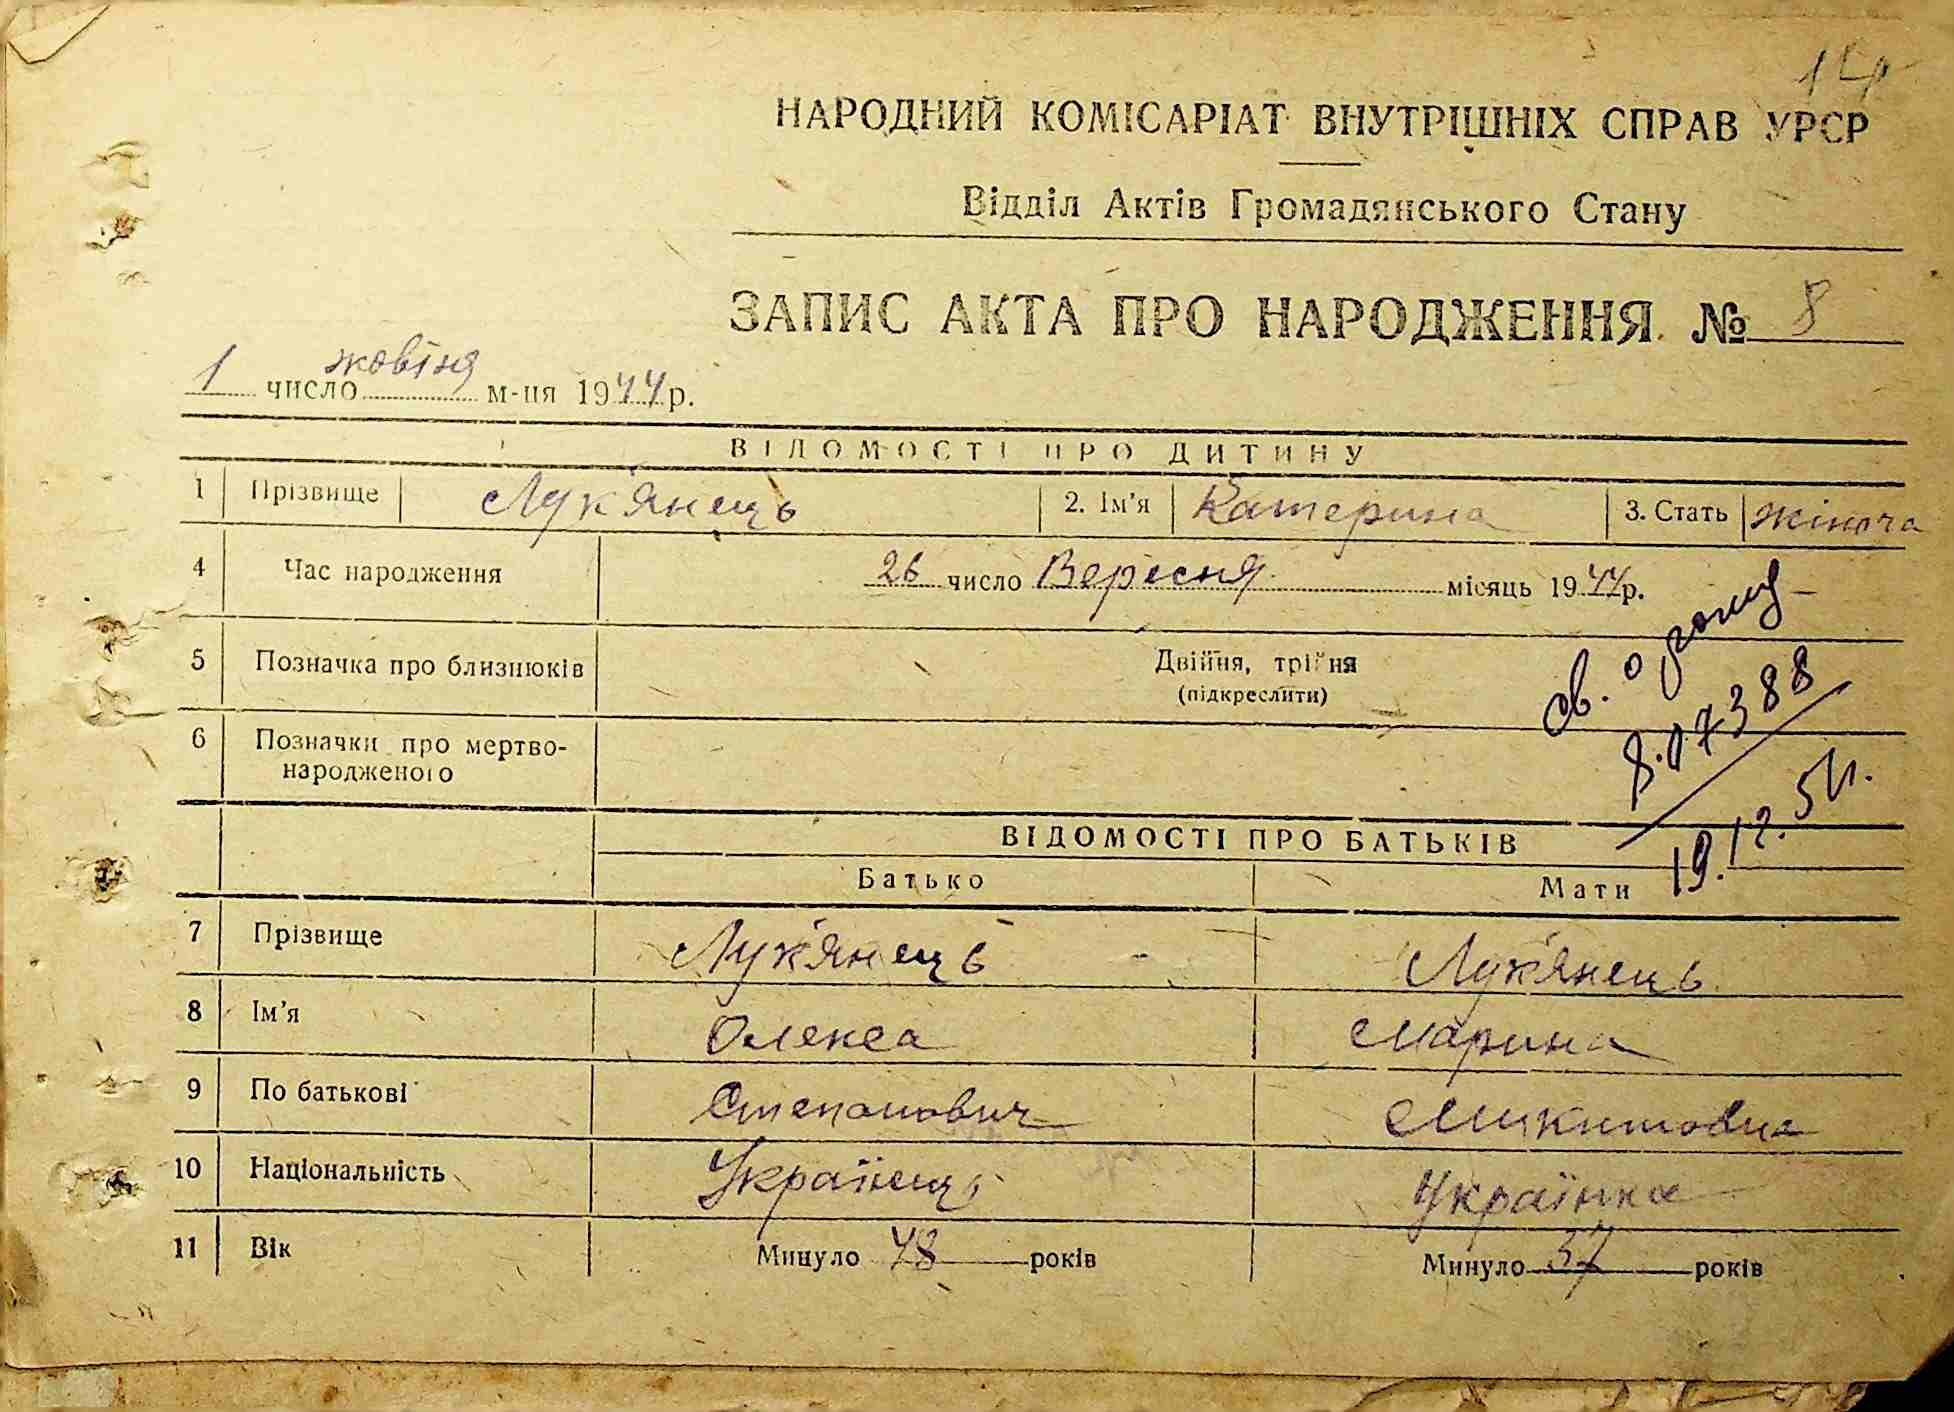 14
НАРОДНИЙ КОМІСАРІАТ ВНУТРІШНІХ СПРАВ УРСР
Відділ Актів Громадянського Стану
ЗАПИС АКТА ПРО НАРОДЖЕННЯ № 8
1 число жовтня м-ця 1944 р.
ВІДОМОСТІ ПРО ДИТИНУ
1 Прізвище Лук'янець 2. Ім'я Катерина 3. Стать жіноча
4 Час народження 26 число Вересня місяць 1944 р.
5 Позначка про близнюків Двійня, трійня
(підкреслити)
6 Позначки про мертво-
народженого
св. о
8.073388
19.12.51.
ВІДОМОСТІ ПРО БАТЬКІВ
Батько Мати
7 Прізвище Лук'янець Лук'янець
8 Ім'я Олекса Марина
9 По батькові Степанович Микитовна
10 Національність Українець Українка
11 Вік Минуло 48 років Минуло 37 років